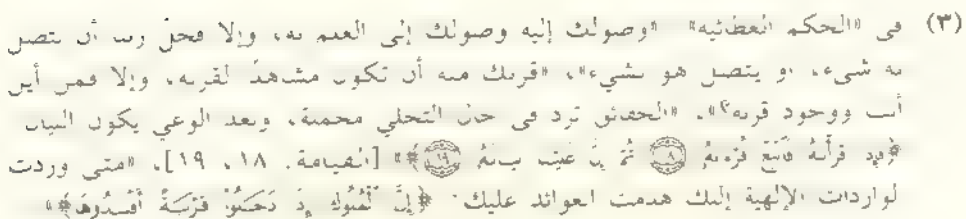 (٣) في «الحكم العطائية» «وصولك إليه وصولك إلى العلم به، وإلا فجل ربنا أن يتصل
به شيء، أو يتصل هو بشيء»، «قربك منه أن تكون مشاهداً لقربه، وإلا فمن أين
أنت ووجود قربه؟»، «الحقائق ترد في حال التجلي مجملة، وبعد الوعي يكون البيان
﴿فَإِذَا قَرَأْنَاهُ فَاتَّبِعْ قُرْآنَهُ ۝١٨ ثُمَّ إِنَّ عَلَيْنَا بَيَانَهُ ۝١٩﴾» [القيامة: ١٨، ١٩]، «متى وردت
الواردات الإلهية إليك هدمت العوائد عليك: ﴿إِنَّ الْمُلُوكَ إِذَا دَخَلُوا قَرْيَةً أَفْسَدُوهَا﴾»